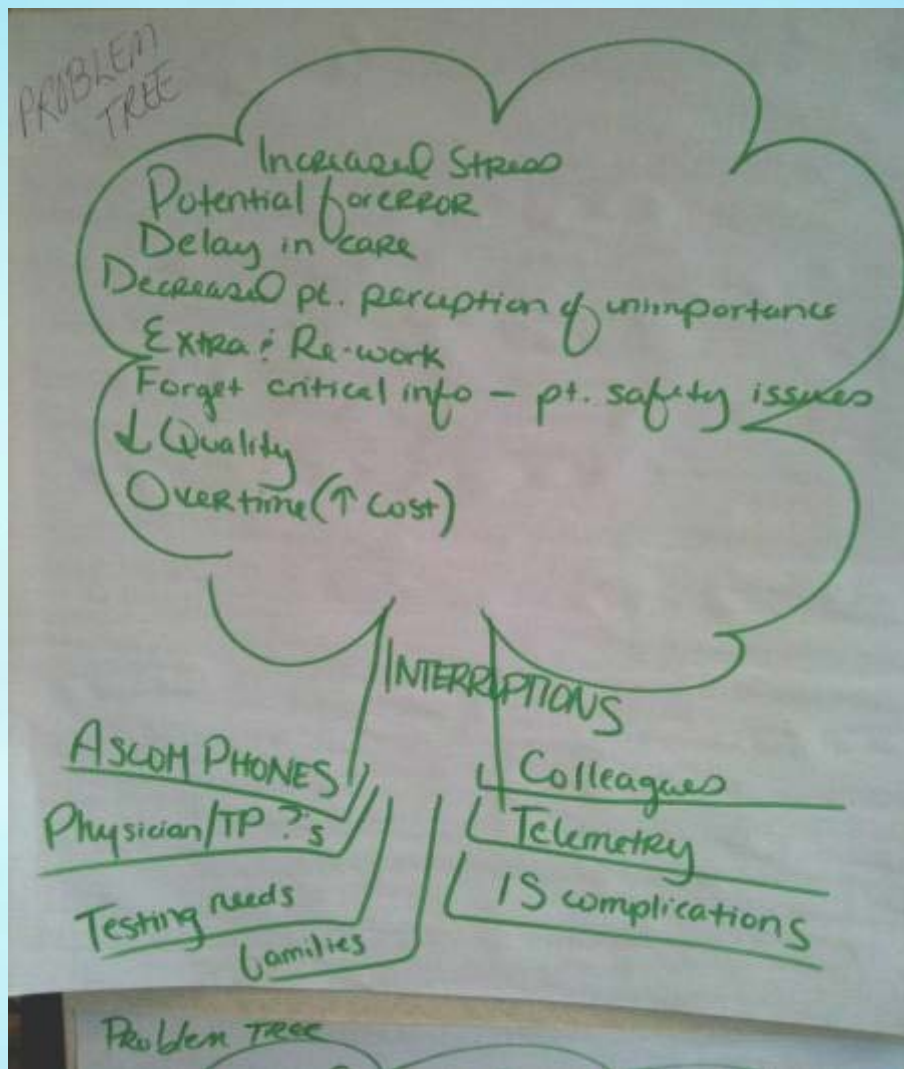 PROBLEM
TREE
Increased Stress
Potential for ERROR
Delay in care
Decreased pt. perception of unimportance
Extra & Re-work
Forget critical info – pt. safety issues
↓ Quality
Overtime (↑ Cost)
INTERRUPTIONS
ASCOM PHONES
Physician/TP ?'s
Testing needs
families
Colleagues
Telemetry
IS complications
Problem TREE